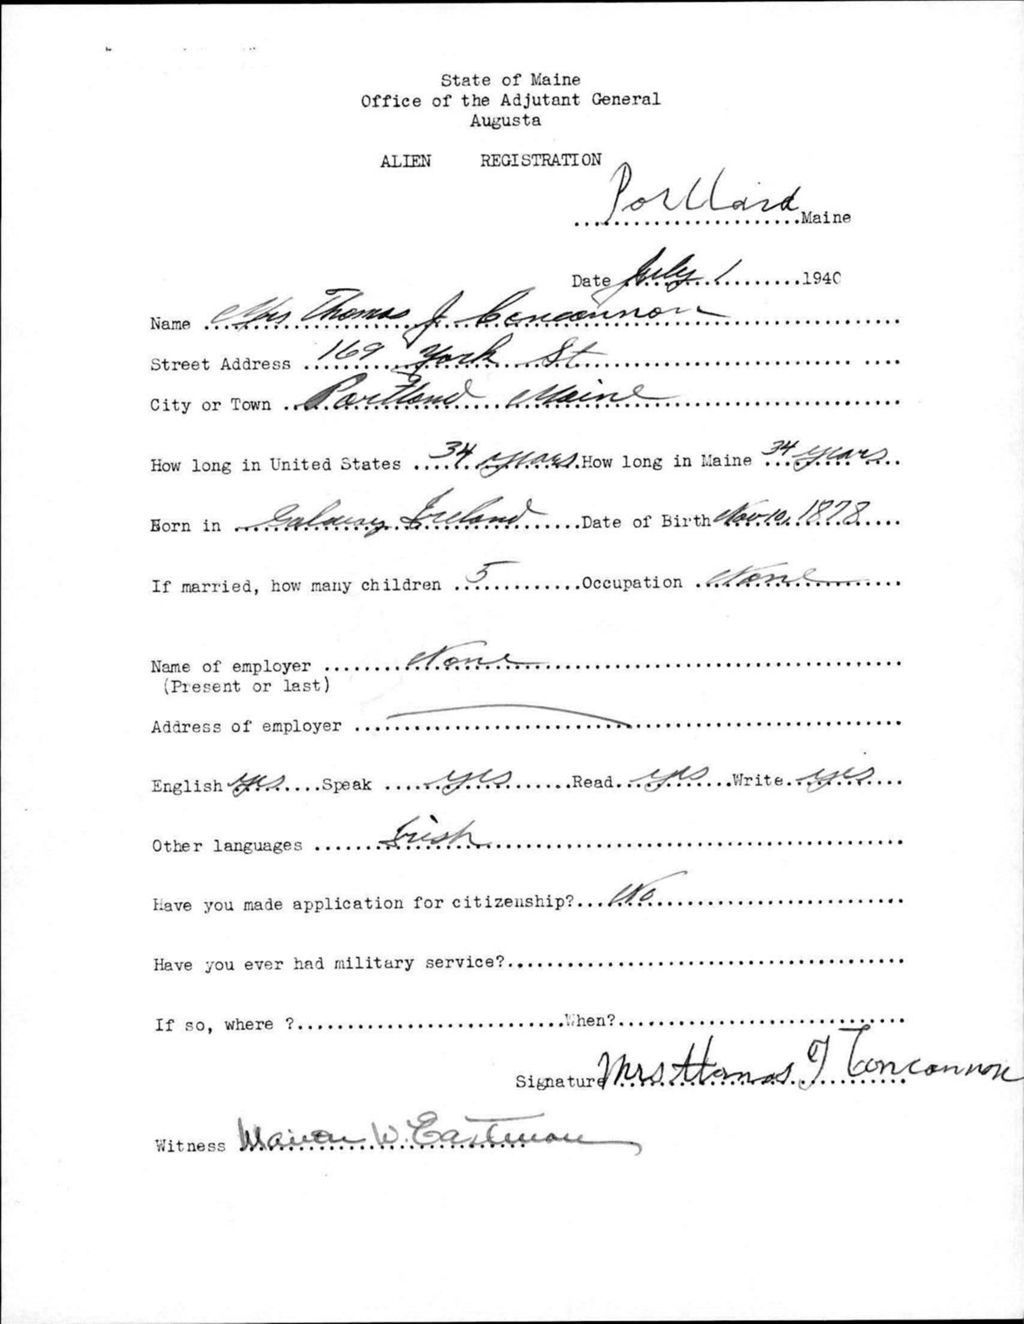 State of Maine
Office of the Adjutant General
Augusta
ALIEN REGISTRATION
Portland Maine
Date July 1 1940
Name Mrs Thomas J Concannon
Street Address 169 York St
City or Town Portland Maine
How long in United States 34 years How long in Maine 34 years
Born in Galway Ireland Date of Birth Nov 10, 1878
If married, how many children 5 Occupation None
Name of employer None
(Present or last)
Address of employer
English yes Speak yes Read yes Write yes
Other languages Irish
Have you made application for citizenship? No
Have you ever had military service?
If so, where ? When?
Signature Mrs Thomas J Concannon
Witness Marion W. Eastman